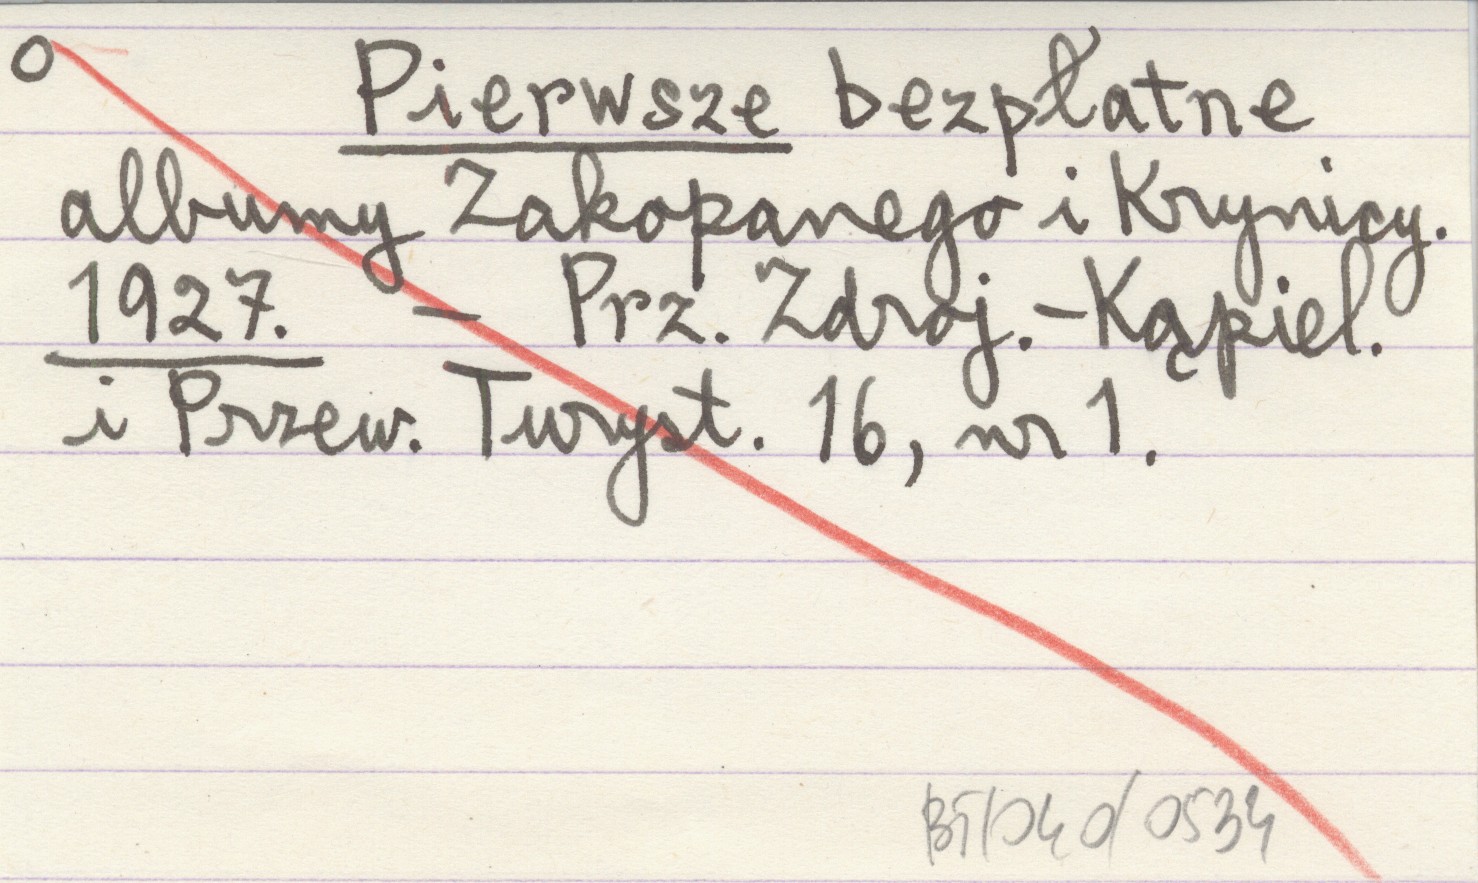 O Pierwsze bezpłatne
albumy Zakopanego i Krynicy.
1927. – Prz. Zdroj.-Kąpiel.
i Przew. Turyst. 16, nr 1.
0534